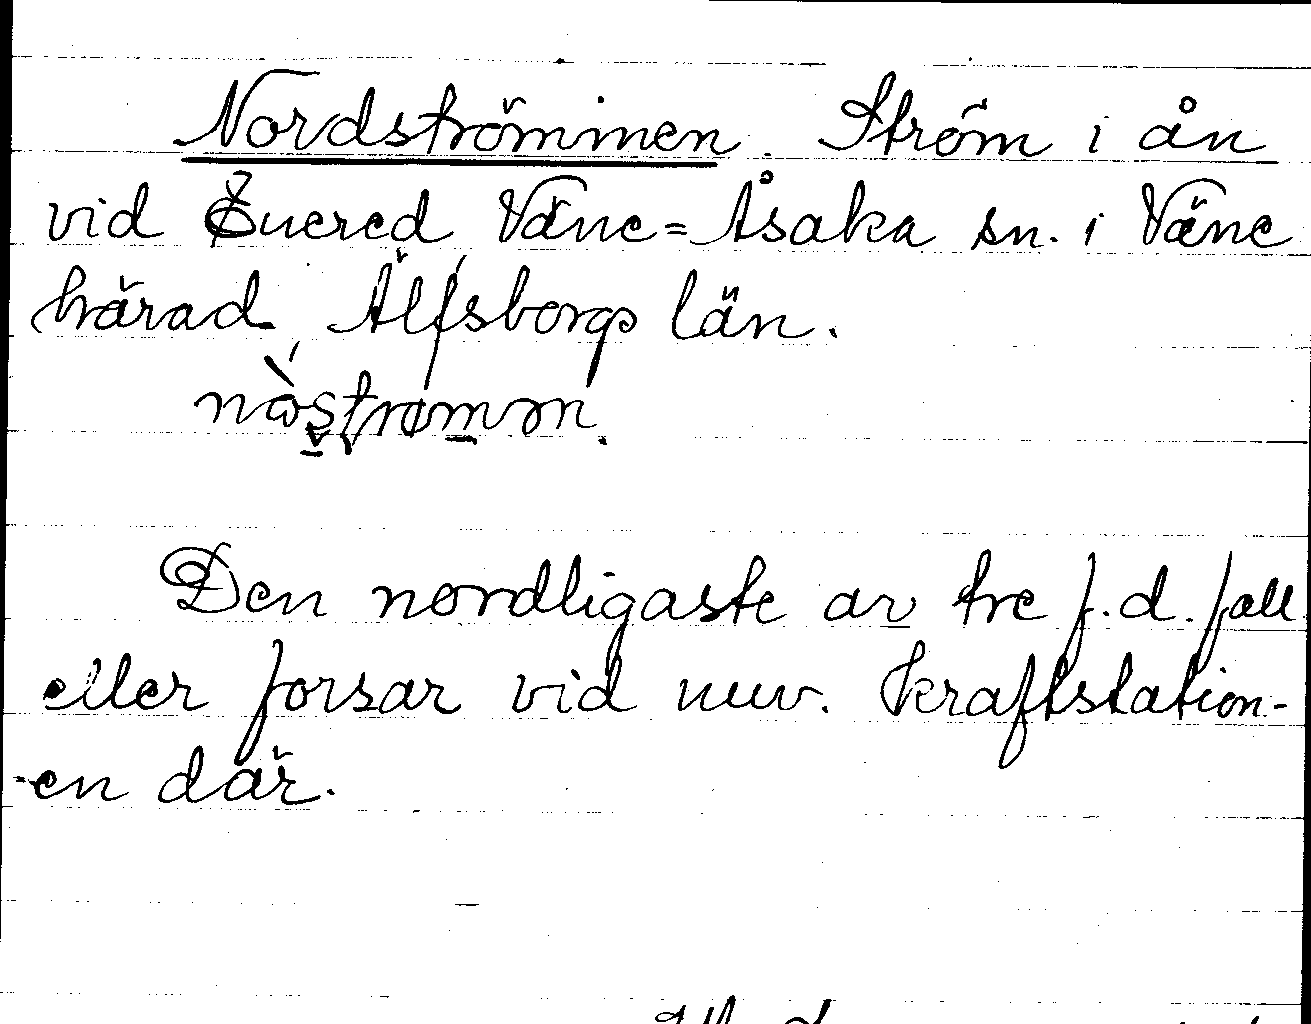 Nordströmmen. Ström i ån
vid Öuered, Väne=Åsaka sn. i Väne
härad, Älfsborgs län.
Den nordligaste av tre f.d. fall
eller forsar vid nuv. kraftstation-
-en där.